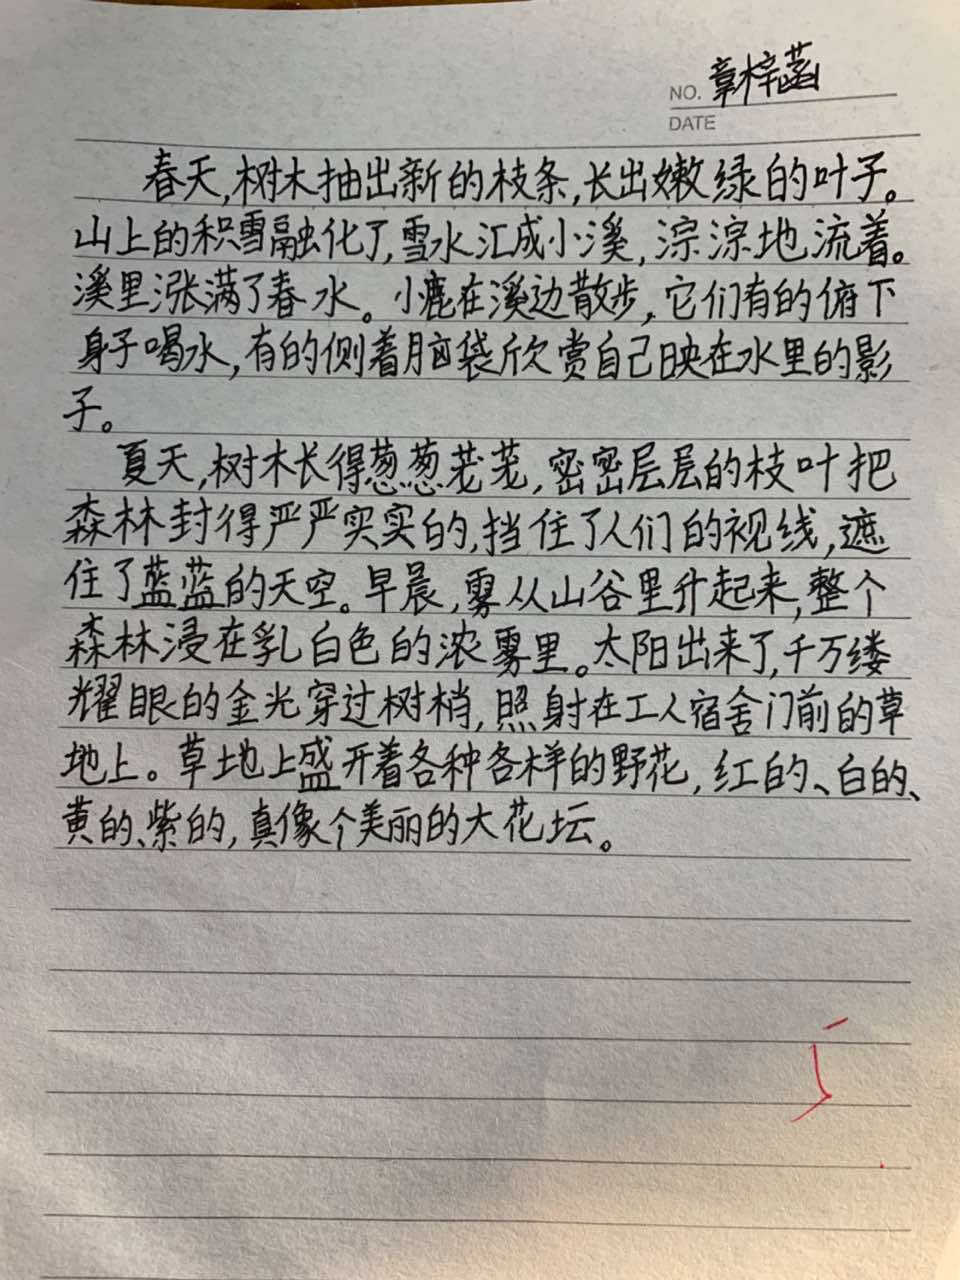 NO. 章梓菡
DATE
春天,树木抽出新的枝条,长出嫩绿的叶子。
山上的积雪融化了,雪水汇成小溪,淙淙地流着。
溪里涨满了春水。小鹿在溪边散步,它们有的俯下
身子喝水,有的侧着脑袋欣赏自己映在水里的影
子。
夏天,树木长得葱葱茏茏,密密层层的枝叶把
森林封得严严实实的,挡住了人们的视线,遮
住了蓝蓝的天空。早晨,雾从山谷里升起来,整个
森林浸在乳白色的浓雾里。太阳出来了,千万缕
耀眼的金光穿过树梢,照射在工人宿舍门前的草
地上。草地上盛开着各种各样的野花,红的、白的、
黄的、紫的,真像个美丽的大花坛。